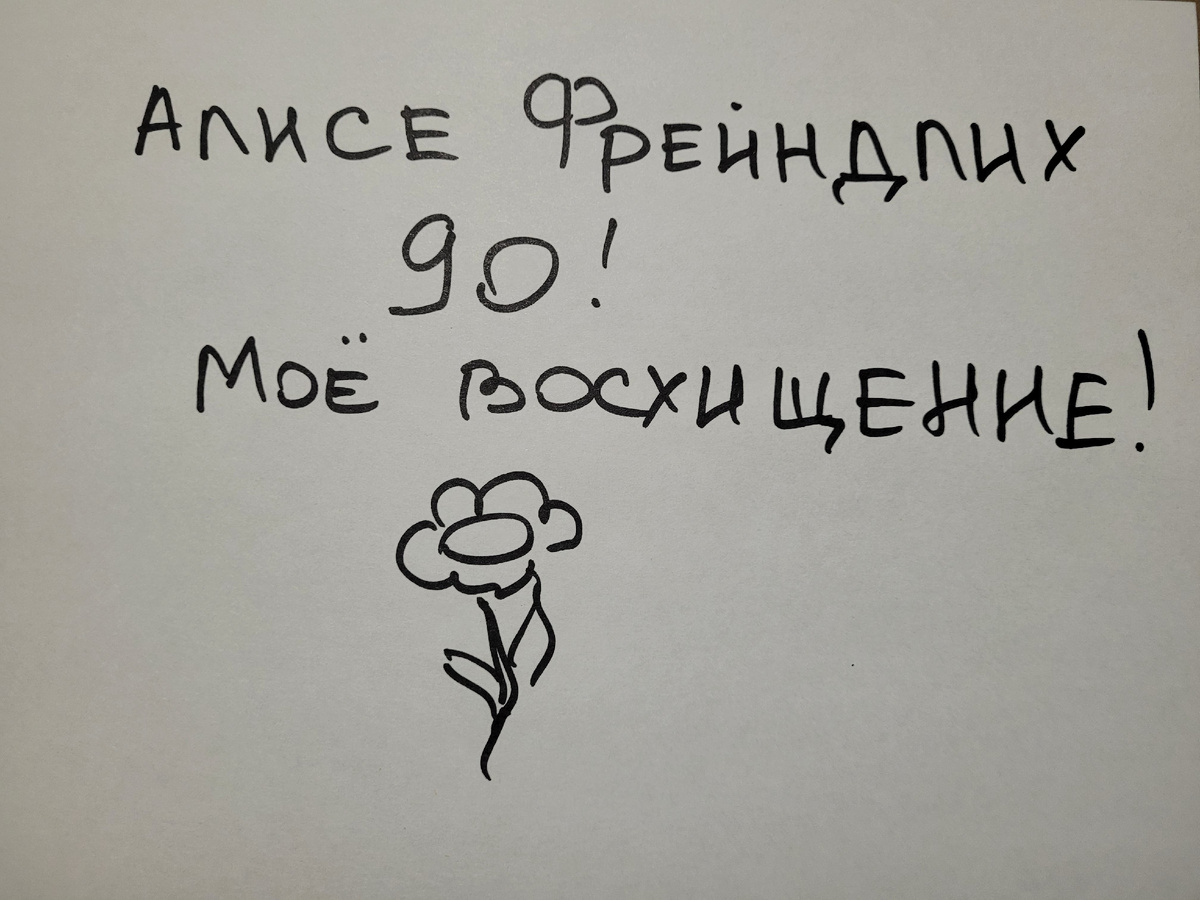 Алисе Фрейндлих
90!
Моё восхищение!